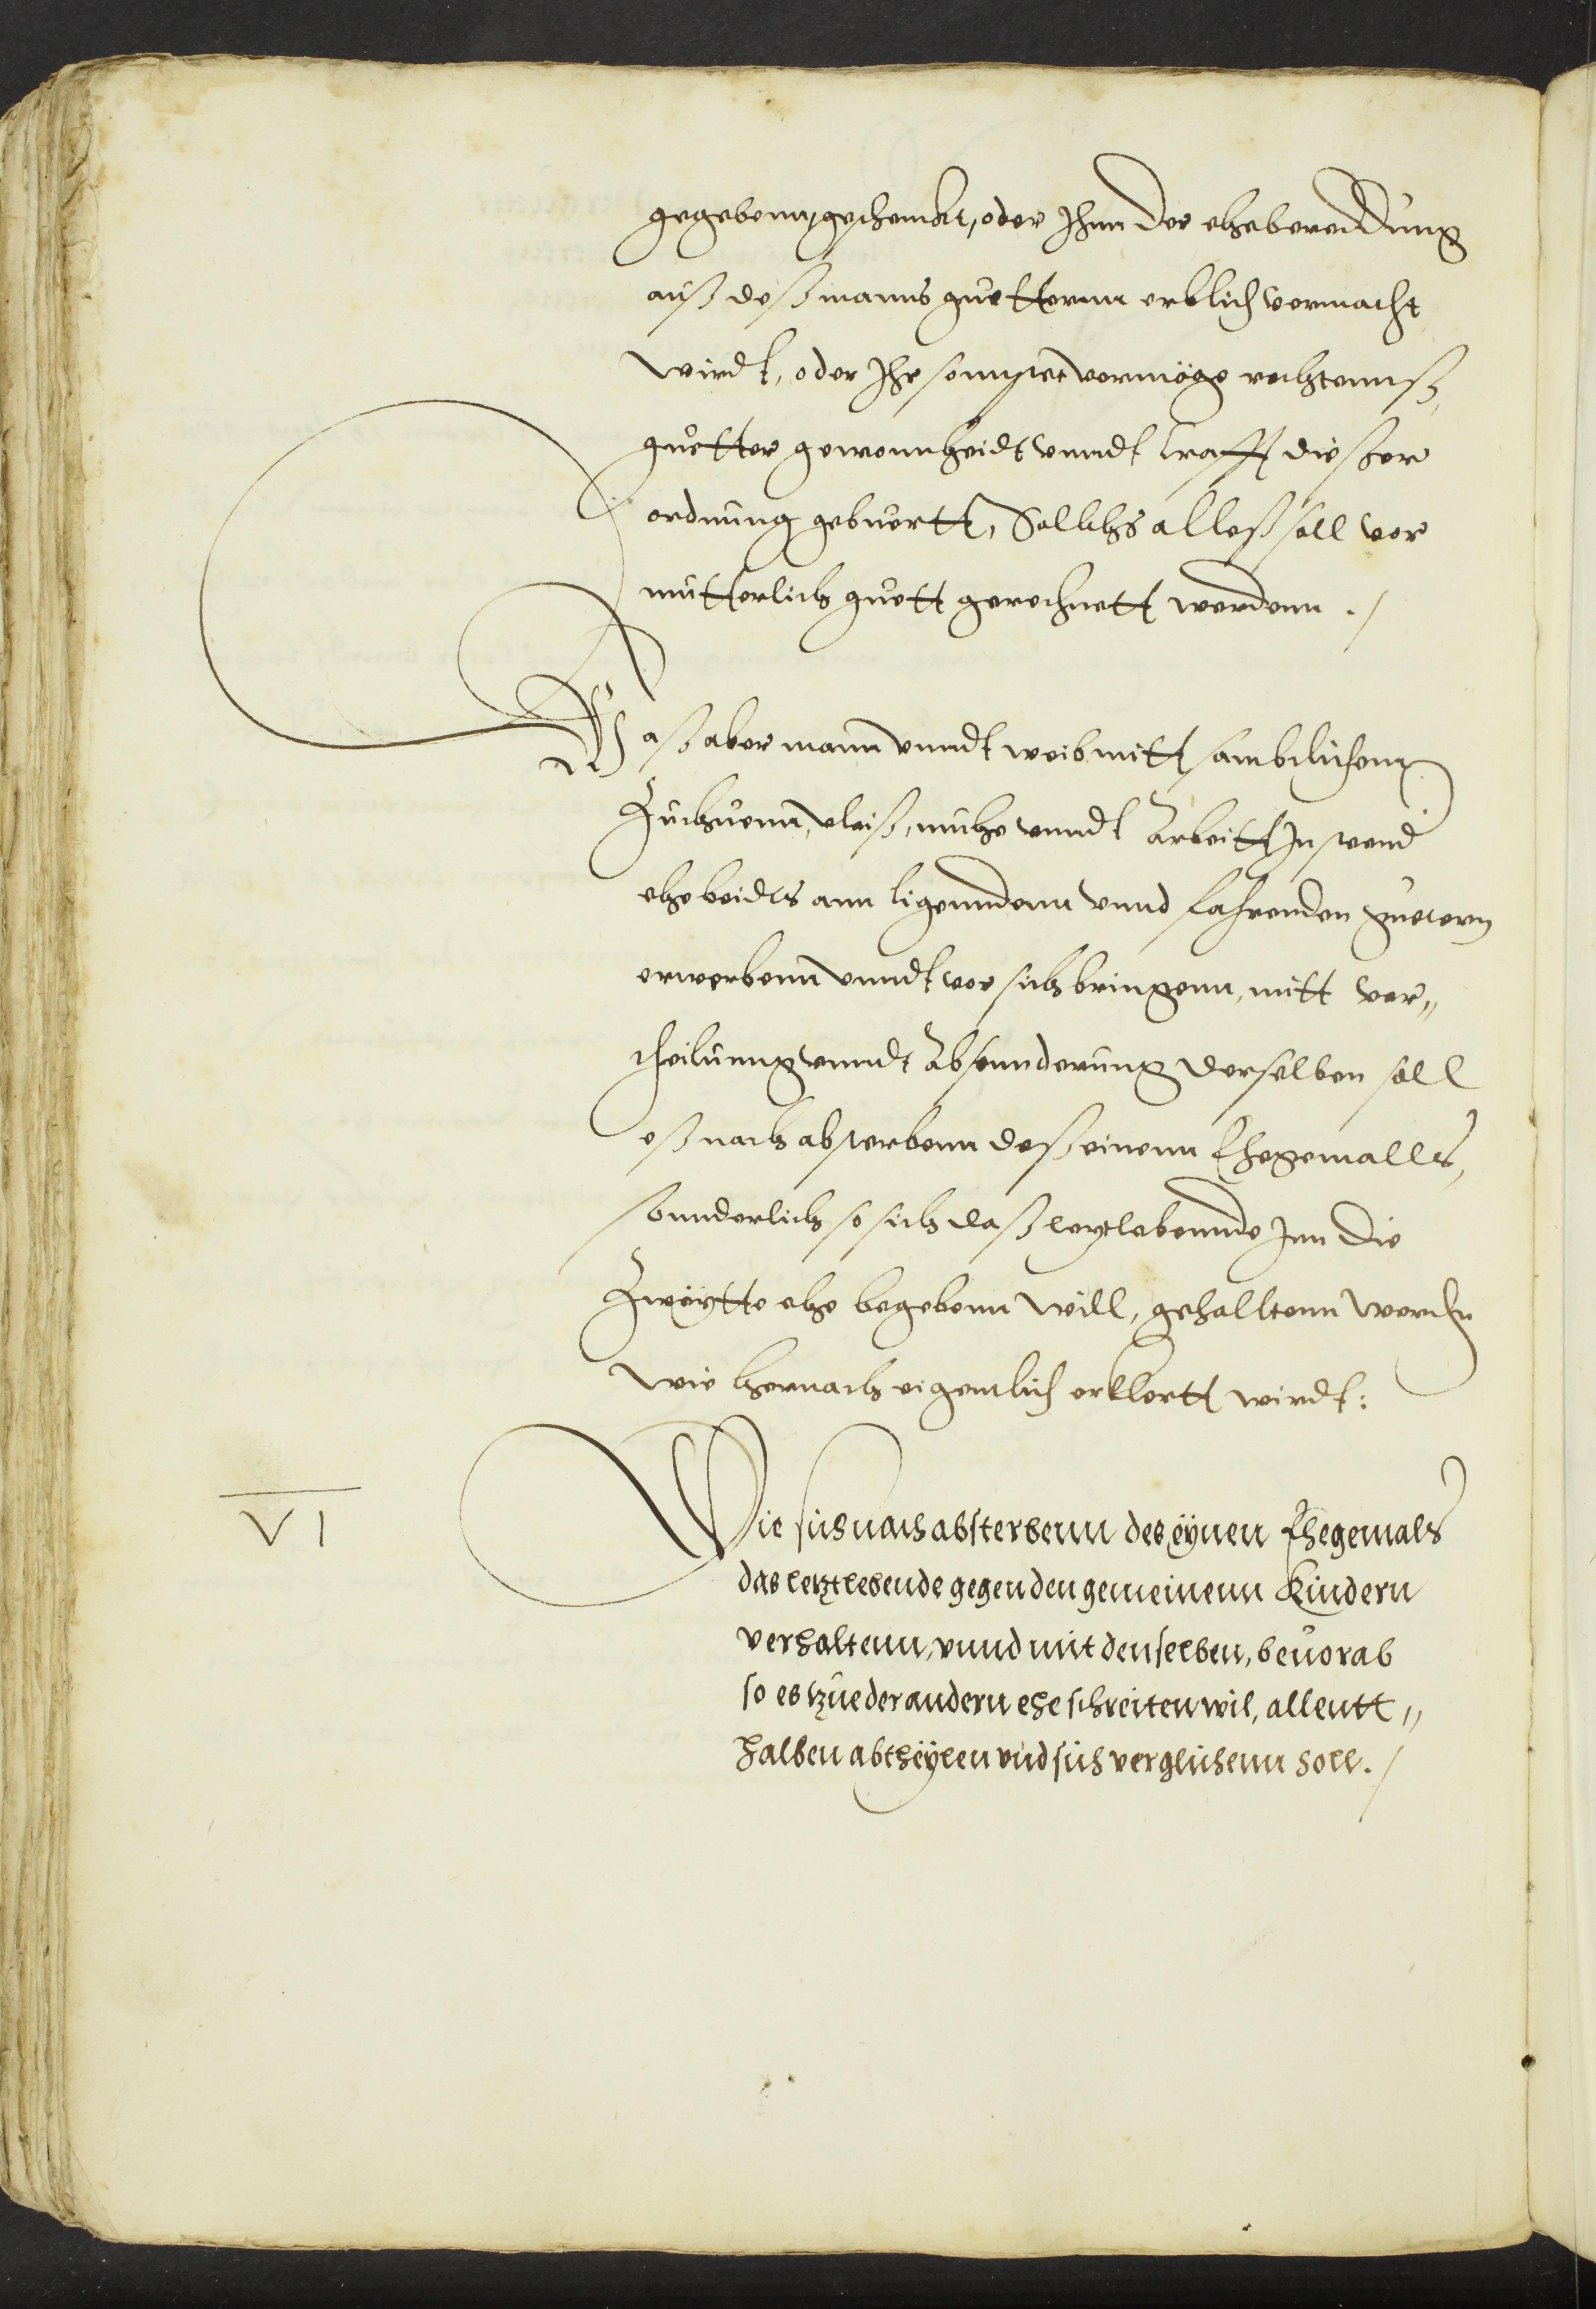 gegebenn, geschenckt, oder Ihnn der ehebereddung
auß deß manns guetternn erblich vermacht
wirdt, oder Ihr sonnsten vermöge rechtenns,
guetter gewonnheidt vnndt krafft dießer
ordnung gebuertt, Sollichs alleß soll vor
mutterlich guett gerechnett werdenn ./
Waß aber mann vnndt weib mitt sambtlichem
Zuthuenn, vleiß, muhe vnndt Arbeitt In stend
ehe beides ann ligenndenn vnnd fahrenden guetern
erwerbenn vnndt vor sich bringenn, mitt ver„
theilunng vnndt Absonnderung derselben soll
eß nach absterbenn deß einenn Ehegemalls,
sonnderlich so sich daß letztlebennde Inn die
Zweytte ehe begebenn will, gehalltenn werden
wie hernach eigentlich erklertt wirdt:
VI
Wie sich nach absterbenn des eynen Ehegemals
das letztlebende gegen den gemeinenn Kindern
verhaltenn, vnnd mit denselben, beuorab
so es tzue der andern ehe schreiten wil, allentt„
halben abtheylen vnd sich verglichenn soll ./